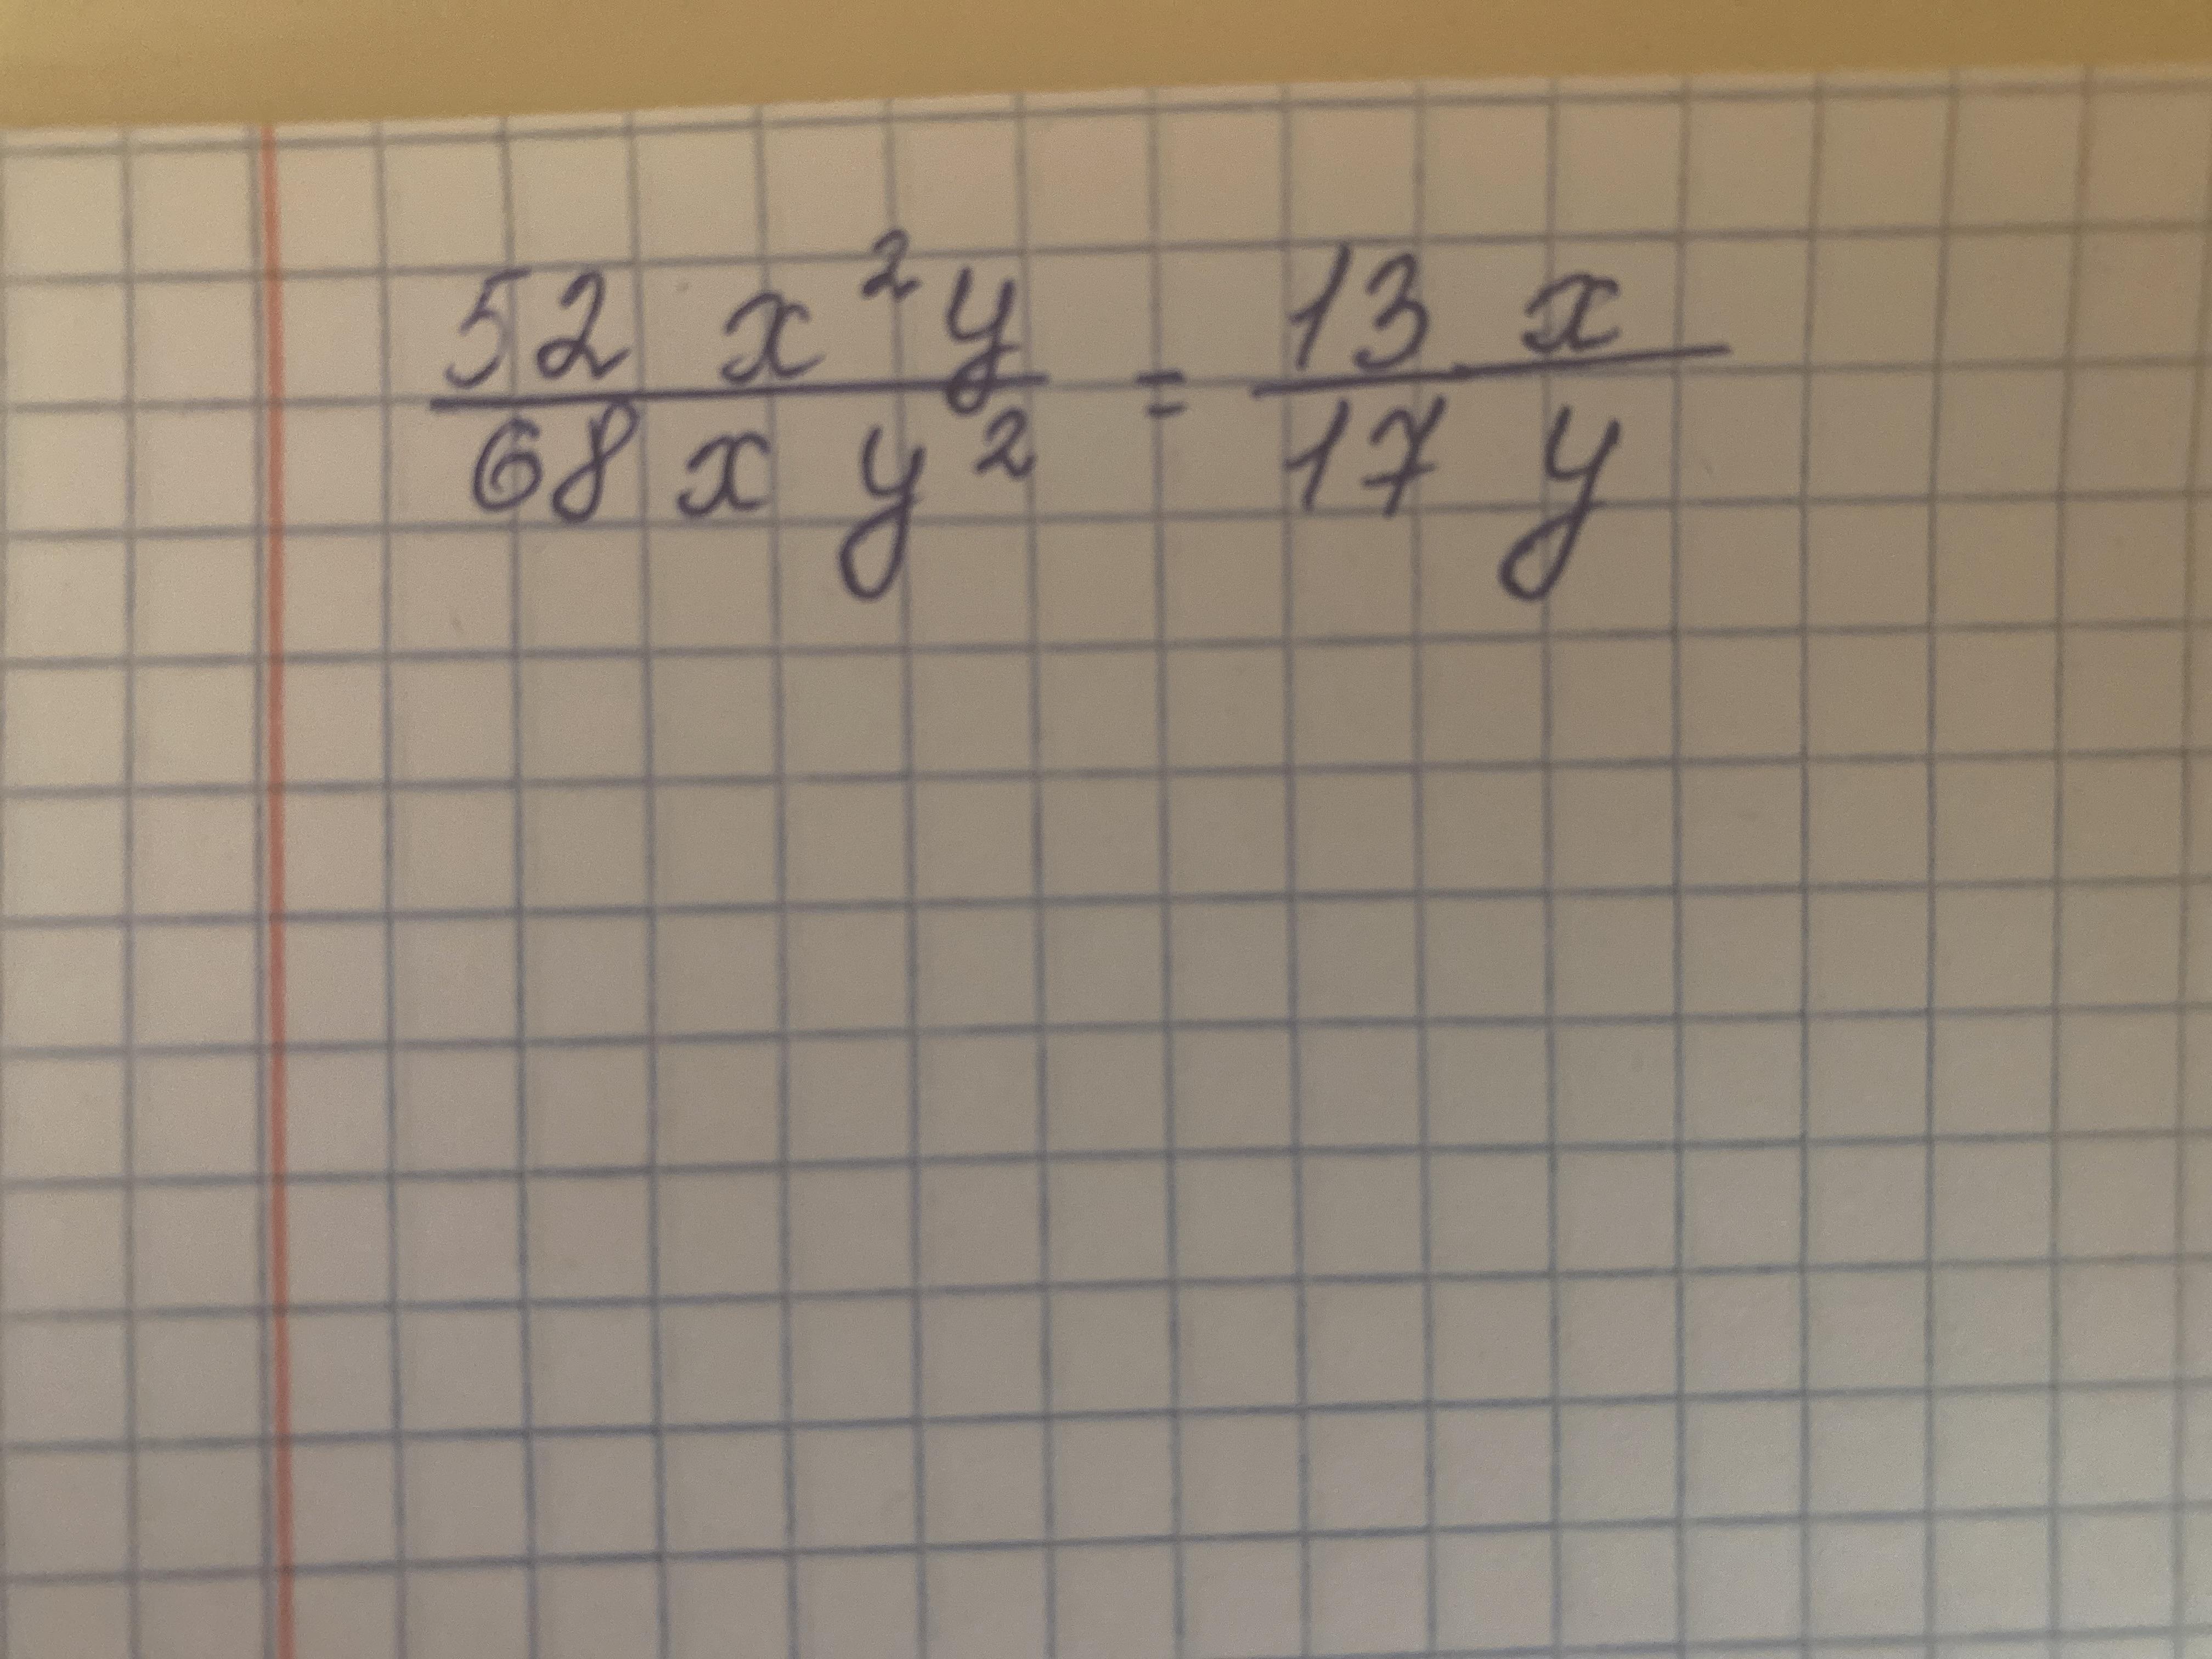 52 x²y / 68 x y² = 13 x / 17 y